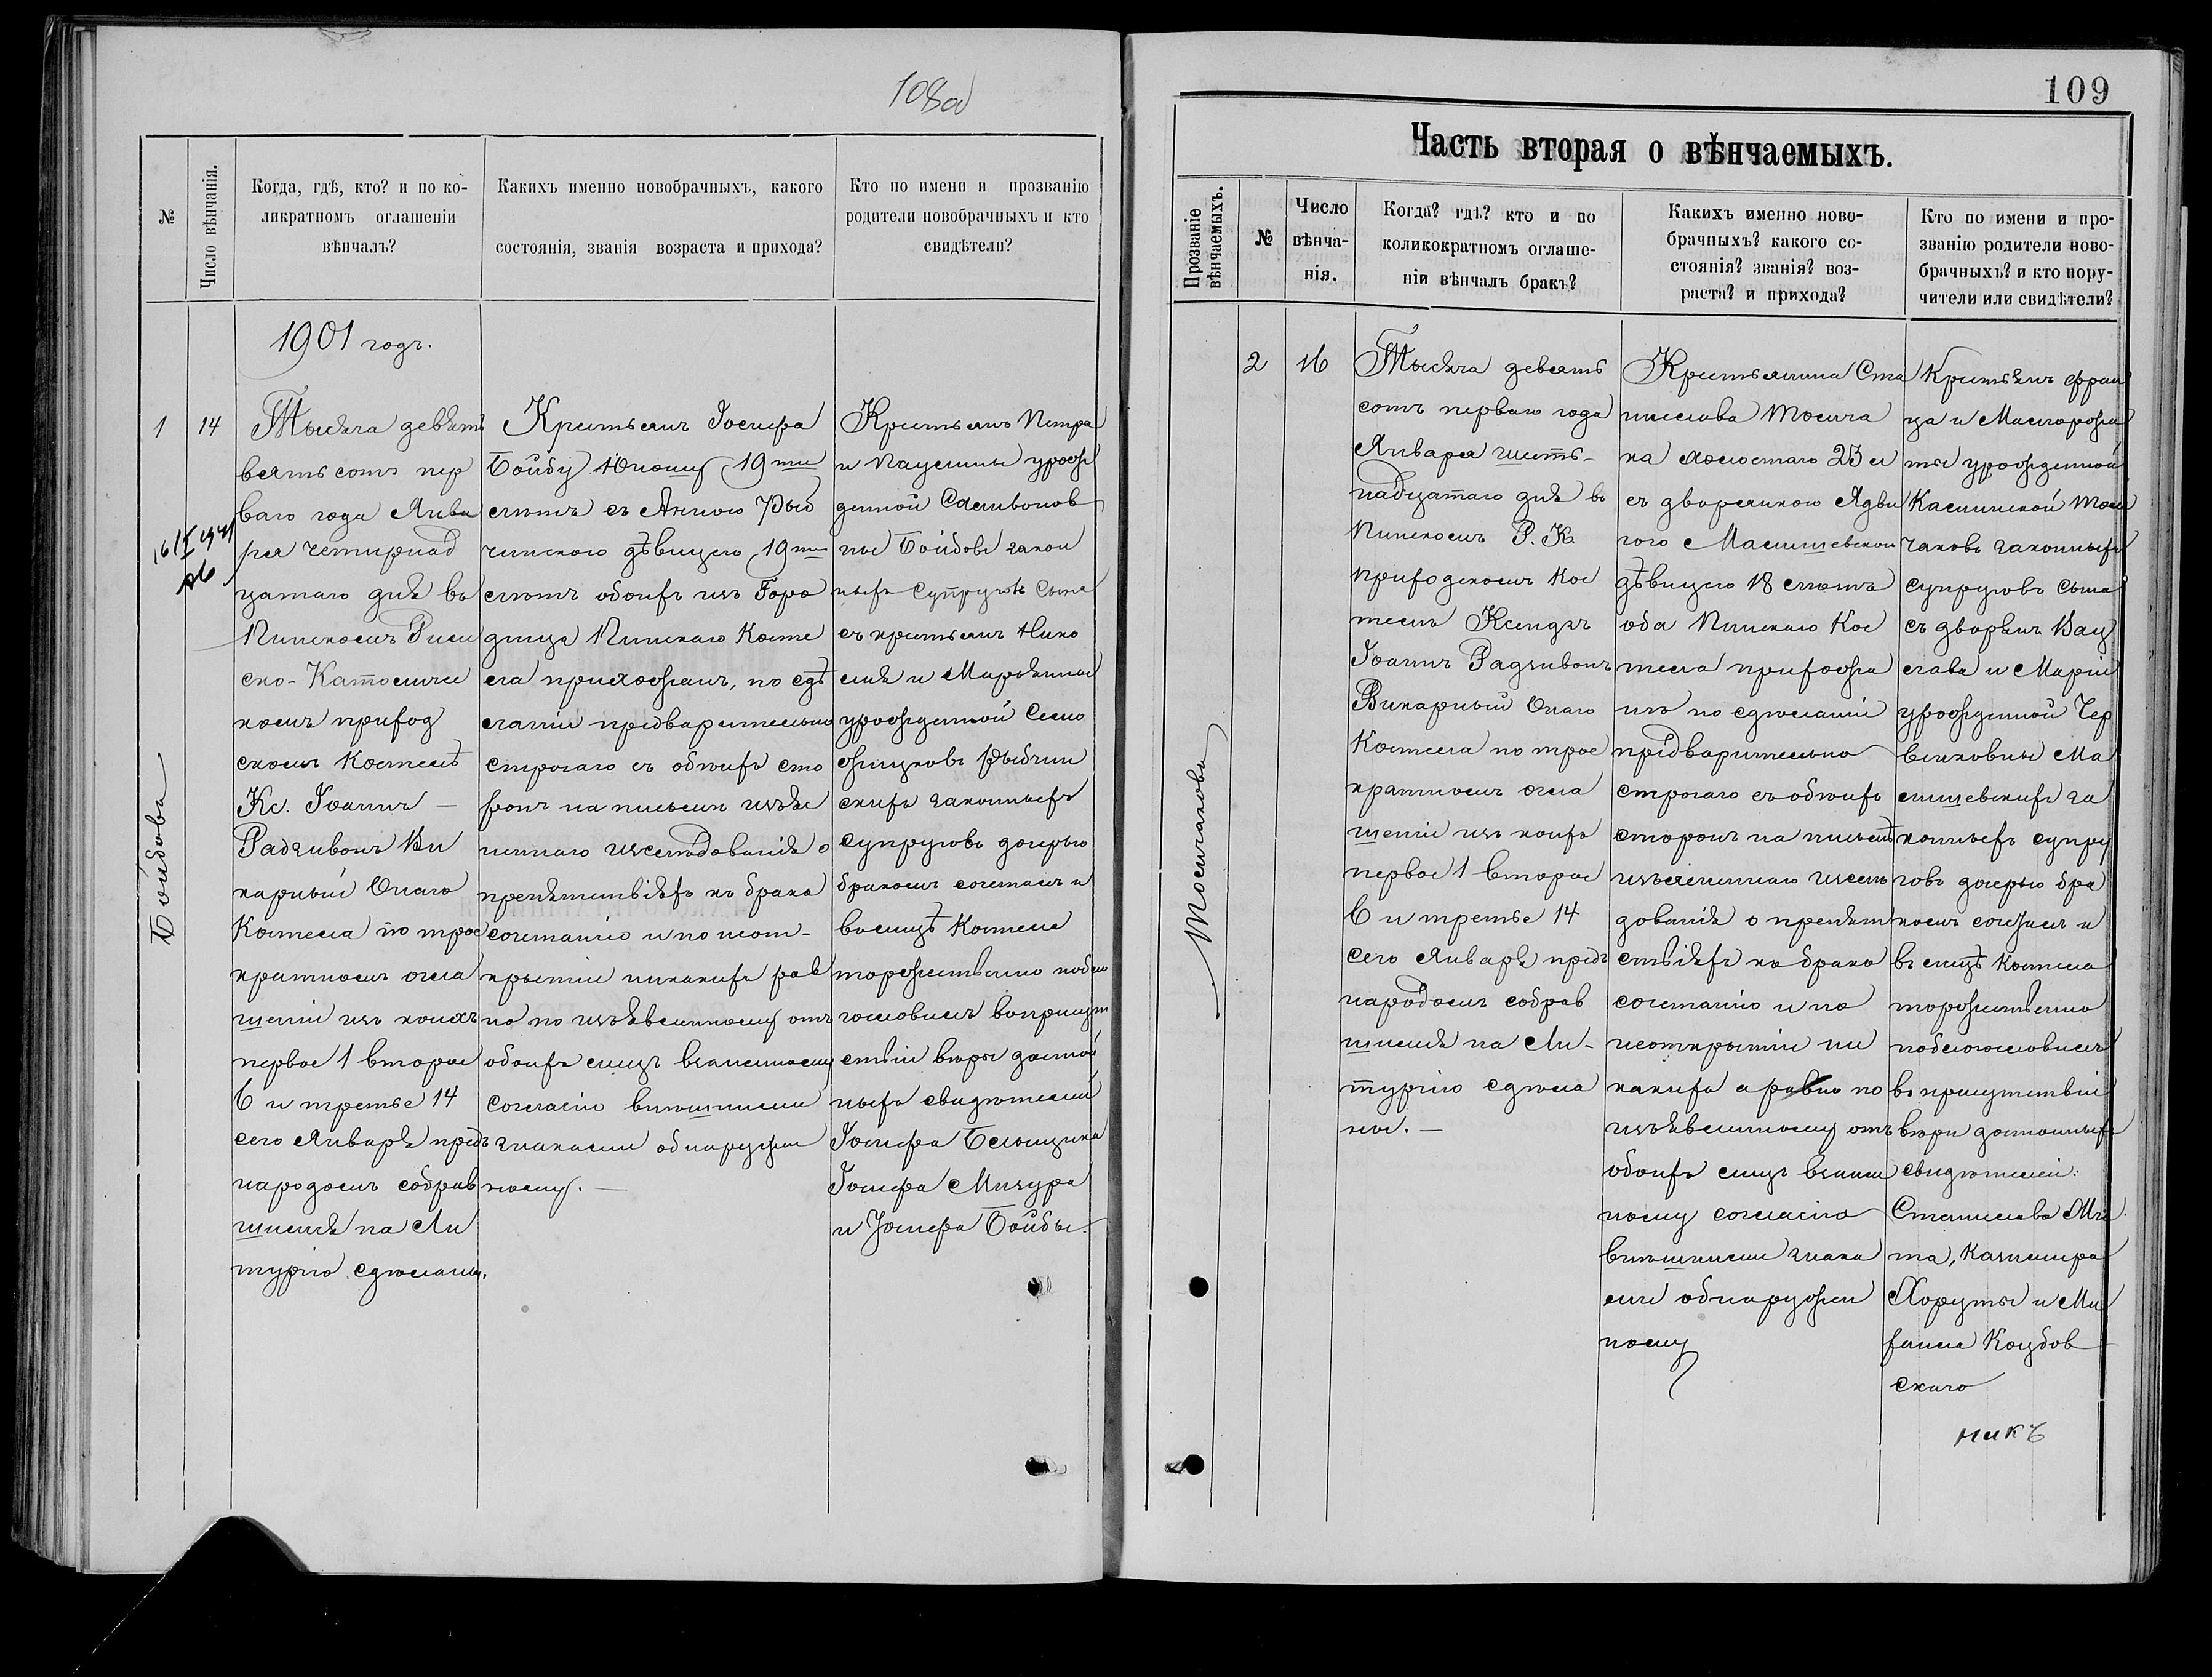 108об
№
Число вѣнчанія.
Когда, гдѣ, кто? и по ко-
ликратномъ оглашеніи
вѣнчалъ?
Какихъ именно новобрачныхъ, какого
состоянія, званія возраста и прихода?
Кто по имени и прозванію
родители новобрачныхъ и кто
свидѣтели?
Бойбова
1
14
1901 годъ.
Тысяча девять
вятьсотъ пер
ваго года Янва
ря четырнад
цатаго дня въ
Пинскомъ Рим
ско-Католиче
комъ приход
скомъ Костелѣ
Кс. Іоаннъ —
Радзивонъ Ви
карный Онаго
Костела по трое
кратномъ огла
шеніи изъ коихъ
первое 1 второе
6 и третье 14
сего Января предъ
народомъ собрав
шимся на Ли
тургію сдѣланы.
Крестьянъ Іосифа
Бойбу Юношу 19ти
лѣтъ съ Анною Рыб
чинскою дѣвицею 19ти
лѣтъ обоихъ изъ Горо
дища Пинскаго Косте
ла прихожанъ, по сдѣ
ланіи предварительно
строгаго съ обѣихъ сто
ронъ на письмѣ изъяс
неннаго изслѣдованія о
препятствіяхъ къ брако
сочетанію и по неот-
крытіи никакихъ рав
но по изъявленному отъ
обоихъ лицъ взаимному
согласію внѣшними
знаками обнаружен
ному. —
Крестьянъ Петра
и Паулины урож
денной Саливонов
ны Бойбовъ закон
ныхъ Супруговъ Сына
съ крестьянъ Нико
лая и Марьянны
урожденной Село
жицковъ Рыбчин
скихъ законныхъ
супруговъ дочерью
бракомъ сочеталъ и
въ лицѣ Костела
торжественно побла
гословилъ въ присут
ствіи вѣры достой
ныхъ свидѣтелей
Іосифа
Іосифа Мизура
и Іосифа Бойбы.
109
Часть вторая о вѣнчаемыхъ.
Прозваніе
вѣнчаемыхъ.
№
Число
вѣнча-
нія.
Когда? гдѣ? кто и по
коликократномъ оглаше-
ніи вѣнчалъ бракъ?
Какихъ именно ново-
брачныхъ? какого со-
стоянія? званія? воз-
раста? и прихода?
Кто по имени и про-
званію родители ново-
брачныхъ? и кто пору-
чители или свидѣтели?
Толчакова
2
16
Тысяча девять
сотъ перваго года
Января шест-
надцатаго дня въ
Пинскомъ Р. К.
приходскомъ Кос
телѣ Ксендзъ
Іоаннъ Радзивонъ
Викарный Онаго
Костела по трое
кратномъ огла
шеніи изъ коихъ
первое 1 второе
6 и третье 14
сего Января предъ
народомъ собрав
шимся на Ли-
тургію сдѣла
ны. —
Крестьянина Ста
нислава Толча
ка холостаго 23 л
съ дворянкою Ядви
гою Малишевскою
дѣвицею 18 лѣтъ
оба Пинскаго Кос
тела прихожа
нъ по сдѣланіи
предварительно
строгаго съ обѣихъ
сторонъ на письмѣ
изъясненнаго изслѣ
дованія о препят
ствіяхъ къ брако
сочетанію и по
неоткрытіи ни
какихъ а равно по
изъявленному отъ
обоихъ лицъ взаим
ному согласію
внѣшними знака
ми обнаружен
ному
Крестьянъ Фран
ца и Малгоржа
ты урожденной
Калинской Тол
чаковъ законныхъ
супруговъ сына
съ дворянъ Вац
лава и Маріи
урожденной Чер
виковны Ма
лишевскихъ за
конныхъ супру
говъ дочерью бра
комъ сочеталъ и
въ лицѣ Костела
торжественно
поблагословилъ
въ присутствіи
вѣры достойныхъ
свидѣтелей:
Станислава
Казимира
Хоруты и Ми
хаила Коцбов
скаго